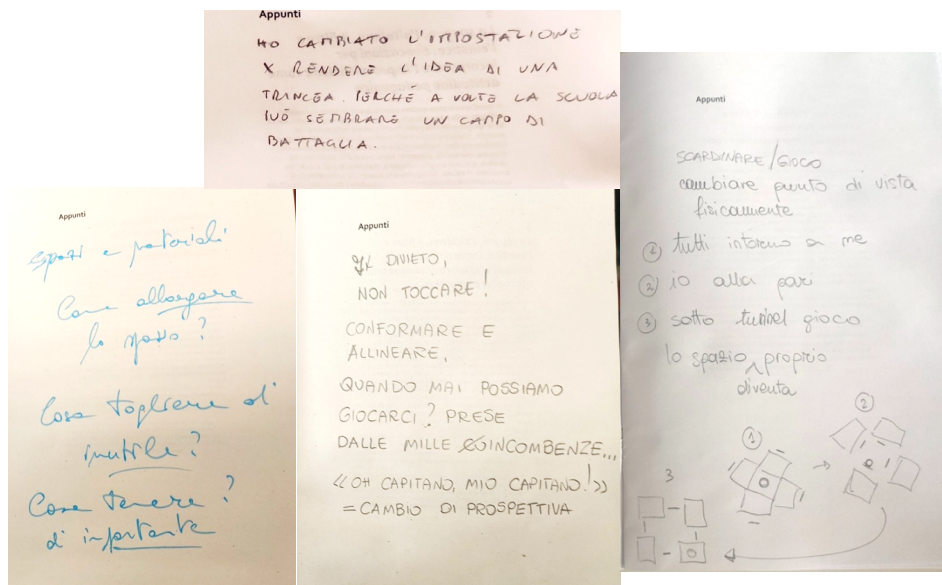 Appunti
HO CAMBIATO L'IMPOSTAZIONE
X RENDERE L'IDEA DI UNA
TRINCEA. PERCHÉ A VOLTE LA SCUOLA
PUÒ SEMBRARE UN CAMPO DI
BATTAGLIA.
Appunti
spazi e materiali
Come allargare
lo spazio?
Cosa togliere di
inutile?
Cosa tenere?
di importante
Appunti
DIVIETO,
NON TOCCARE!
CONFORMARE E
ALLINEARE,
QUANDO MAI POSSIAMO
GIOCARCI? PRESE
DALLE MILLE INCOMBENZE...
<<OH CAPITANO, MIO CAPITANO!>>
= CAMBIO DI PROSPETTIVA
Appunti
SCARDINARE/GIOCO
cambiare punto di vista
fisicamente
1 tutti intorno a me
2 io alla pari
3 sotto tunnel gioco
lo spazio proprio
diventa
1
2
3